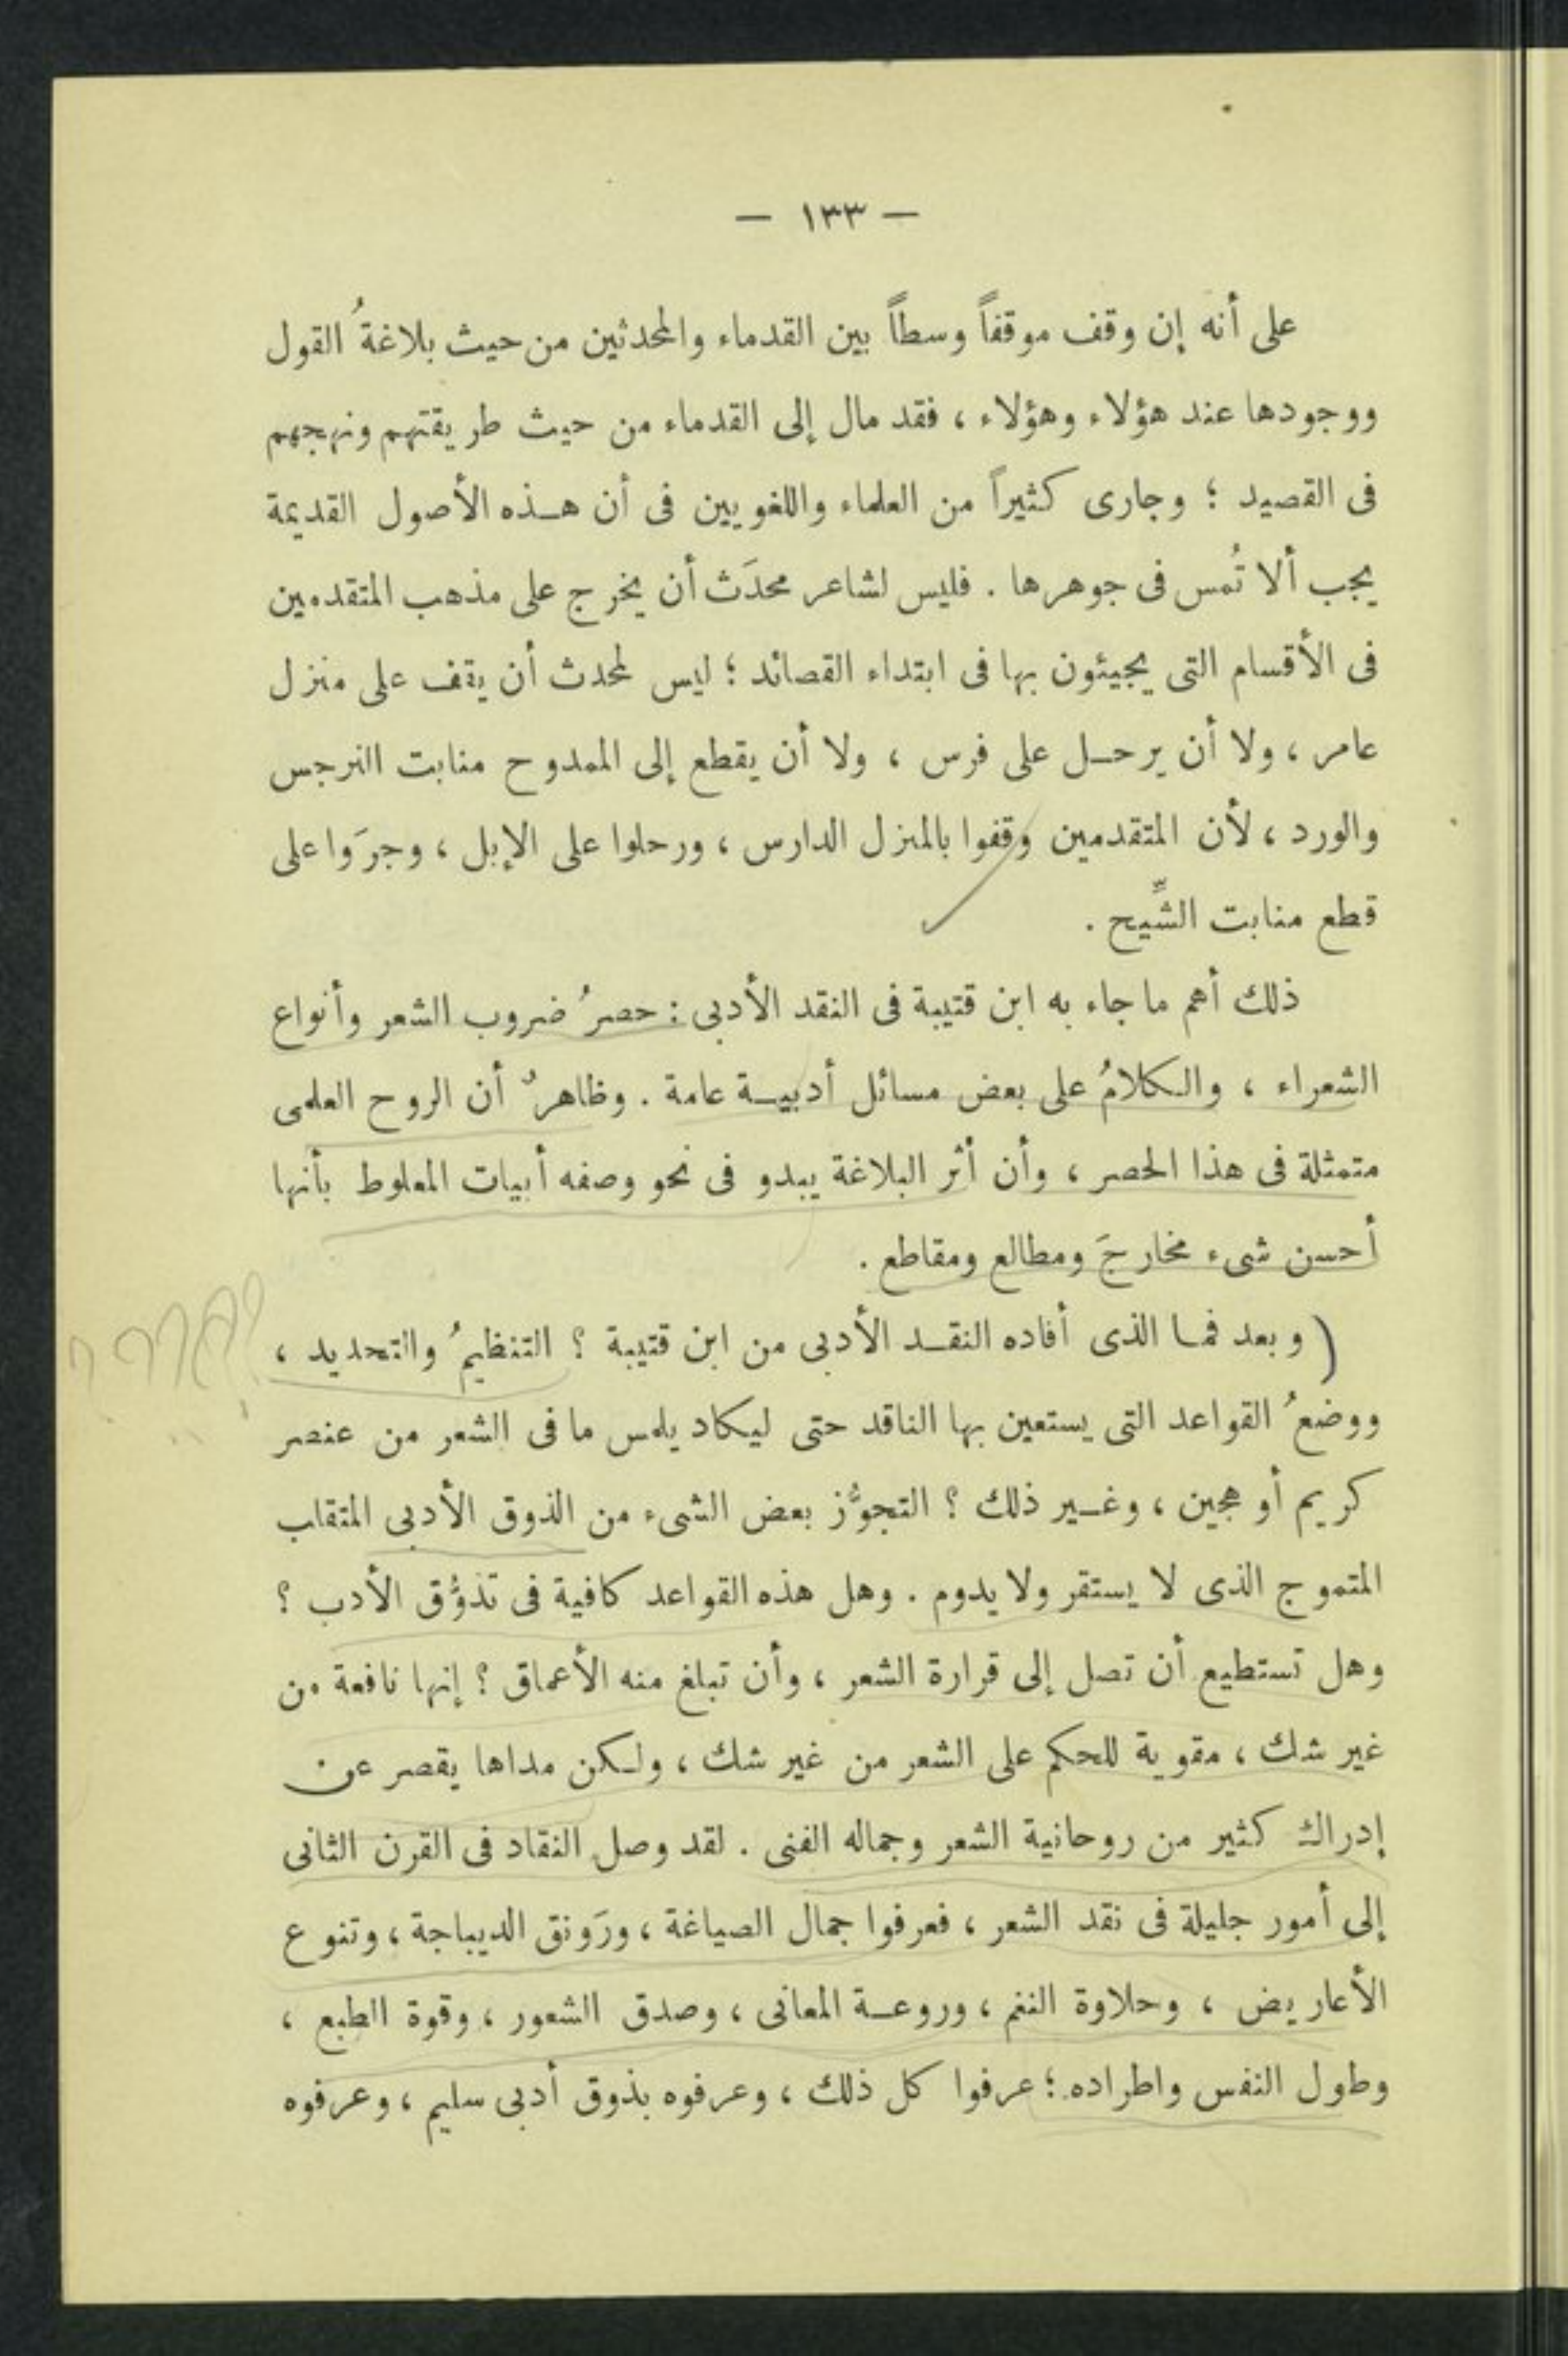 — ١٣٣ —
على أنه إن وقف موقفاً وسطاً بين القدماء والمحدثين من حيث بلاغةُ القول
ووجودها عند هؤلاء وهؤلاء ، فقد مال إلى القدماء من حيث طريقتهم ونهجهم
فى القصيد ؛ وجارى كثيراً من العلماء واللغويين فى أن هذه الأصول القديمة
يجب ألا تُمس فى جوهرها . فليس لشاعر محدَث أن يخرج على مذهب المتقدمين
فى الأقسام التى يجيئون بها فى ابتداء القصائد ؛ ليس لمحدث أن يقف على منزل
عامر ، ولا أن يرحل على فرس ، ولا أن يقطع إلى الممدوح منابت النرجس
والورد ، لأن المتقدمين وقفوا بالمنزل الدارس ، ورحلوا على الإبل ، وجرَوا على
قطع منابت الشِّيح .
ذلك أهم ما جاء به ابن قتيبة فى النقد الأدبى : حصرُ ضروب الشعر وأنواع
الشعراء ، والكلامُ على بعض مسائل أدبية عامة . وظاهرٌ أن الروح العلمى
متمثلة فى هذا الحصر ، وأن أثر البلاغة يبدو فى نحو وصفه أبيات المعلوط بأنها
أحسن شىء مخارجَ ومطالع ومقاطع .
( وبعد فما الذى أفاده النقد الأدبى من ابن قتيبة ؟ التنظيمُ والتحديد ،
ووضعُ القواعد التى يستعين بها الناقد حتى ليكاد يلمس ما فى الشعر من عنصر
كريم أو هجين ، وغير ذلك ؟ التجوُّز بعض الشىء من الذوق الأدبى المتقلب
المتموج الذى لا يستقر ولا يدوم . وهل هذه القواعد كافية فى تذوُّق الأدب ؟
وهل تستطيع أن تصل إلى قرارة الشعر ، وأن تبلغ منه الأعماق ؟ إنها نافعة من
غير شك ، مقوية للحكم على الشعر من غير شك ، ولكن مداها يقصر عن
إدراك كثير من روحانية الشعر وجماله الفنى . لقد وصل النقاد فى القرن الثانى
إلى أمور جليلة فى نقد الشعر ، فعرفوا جمال الصياغة ، ورَونق الديباجة ، وتنوع
الأعاريض ، وحلاوة النغم ، وروعة المعانى ، وصدق الشعور ، وقوة الطبع ،
وطول النفس واطراده ؛ عرفوا كل ذلك ، وعرفوه بذوق أدبى سليم ، وعرفوه